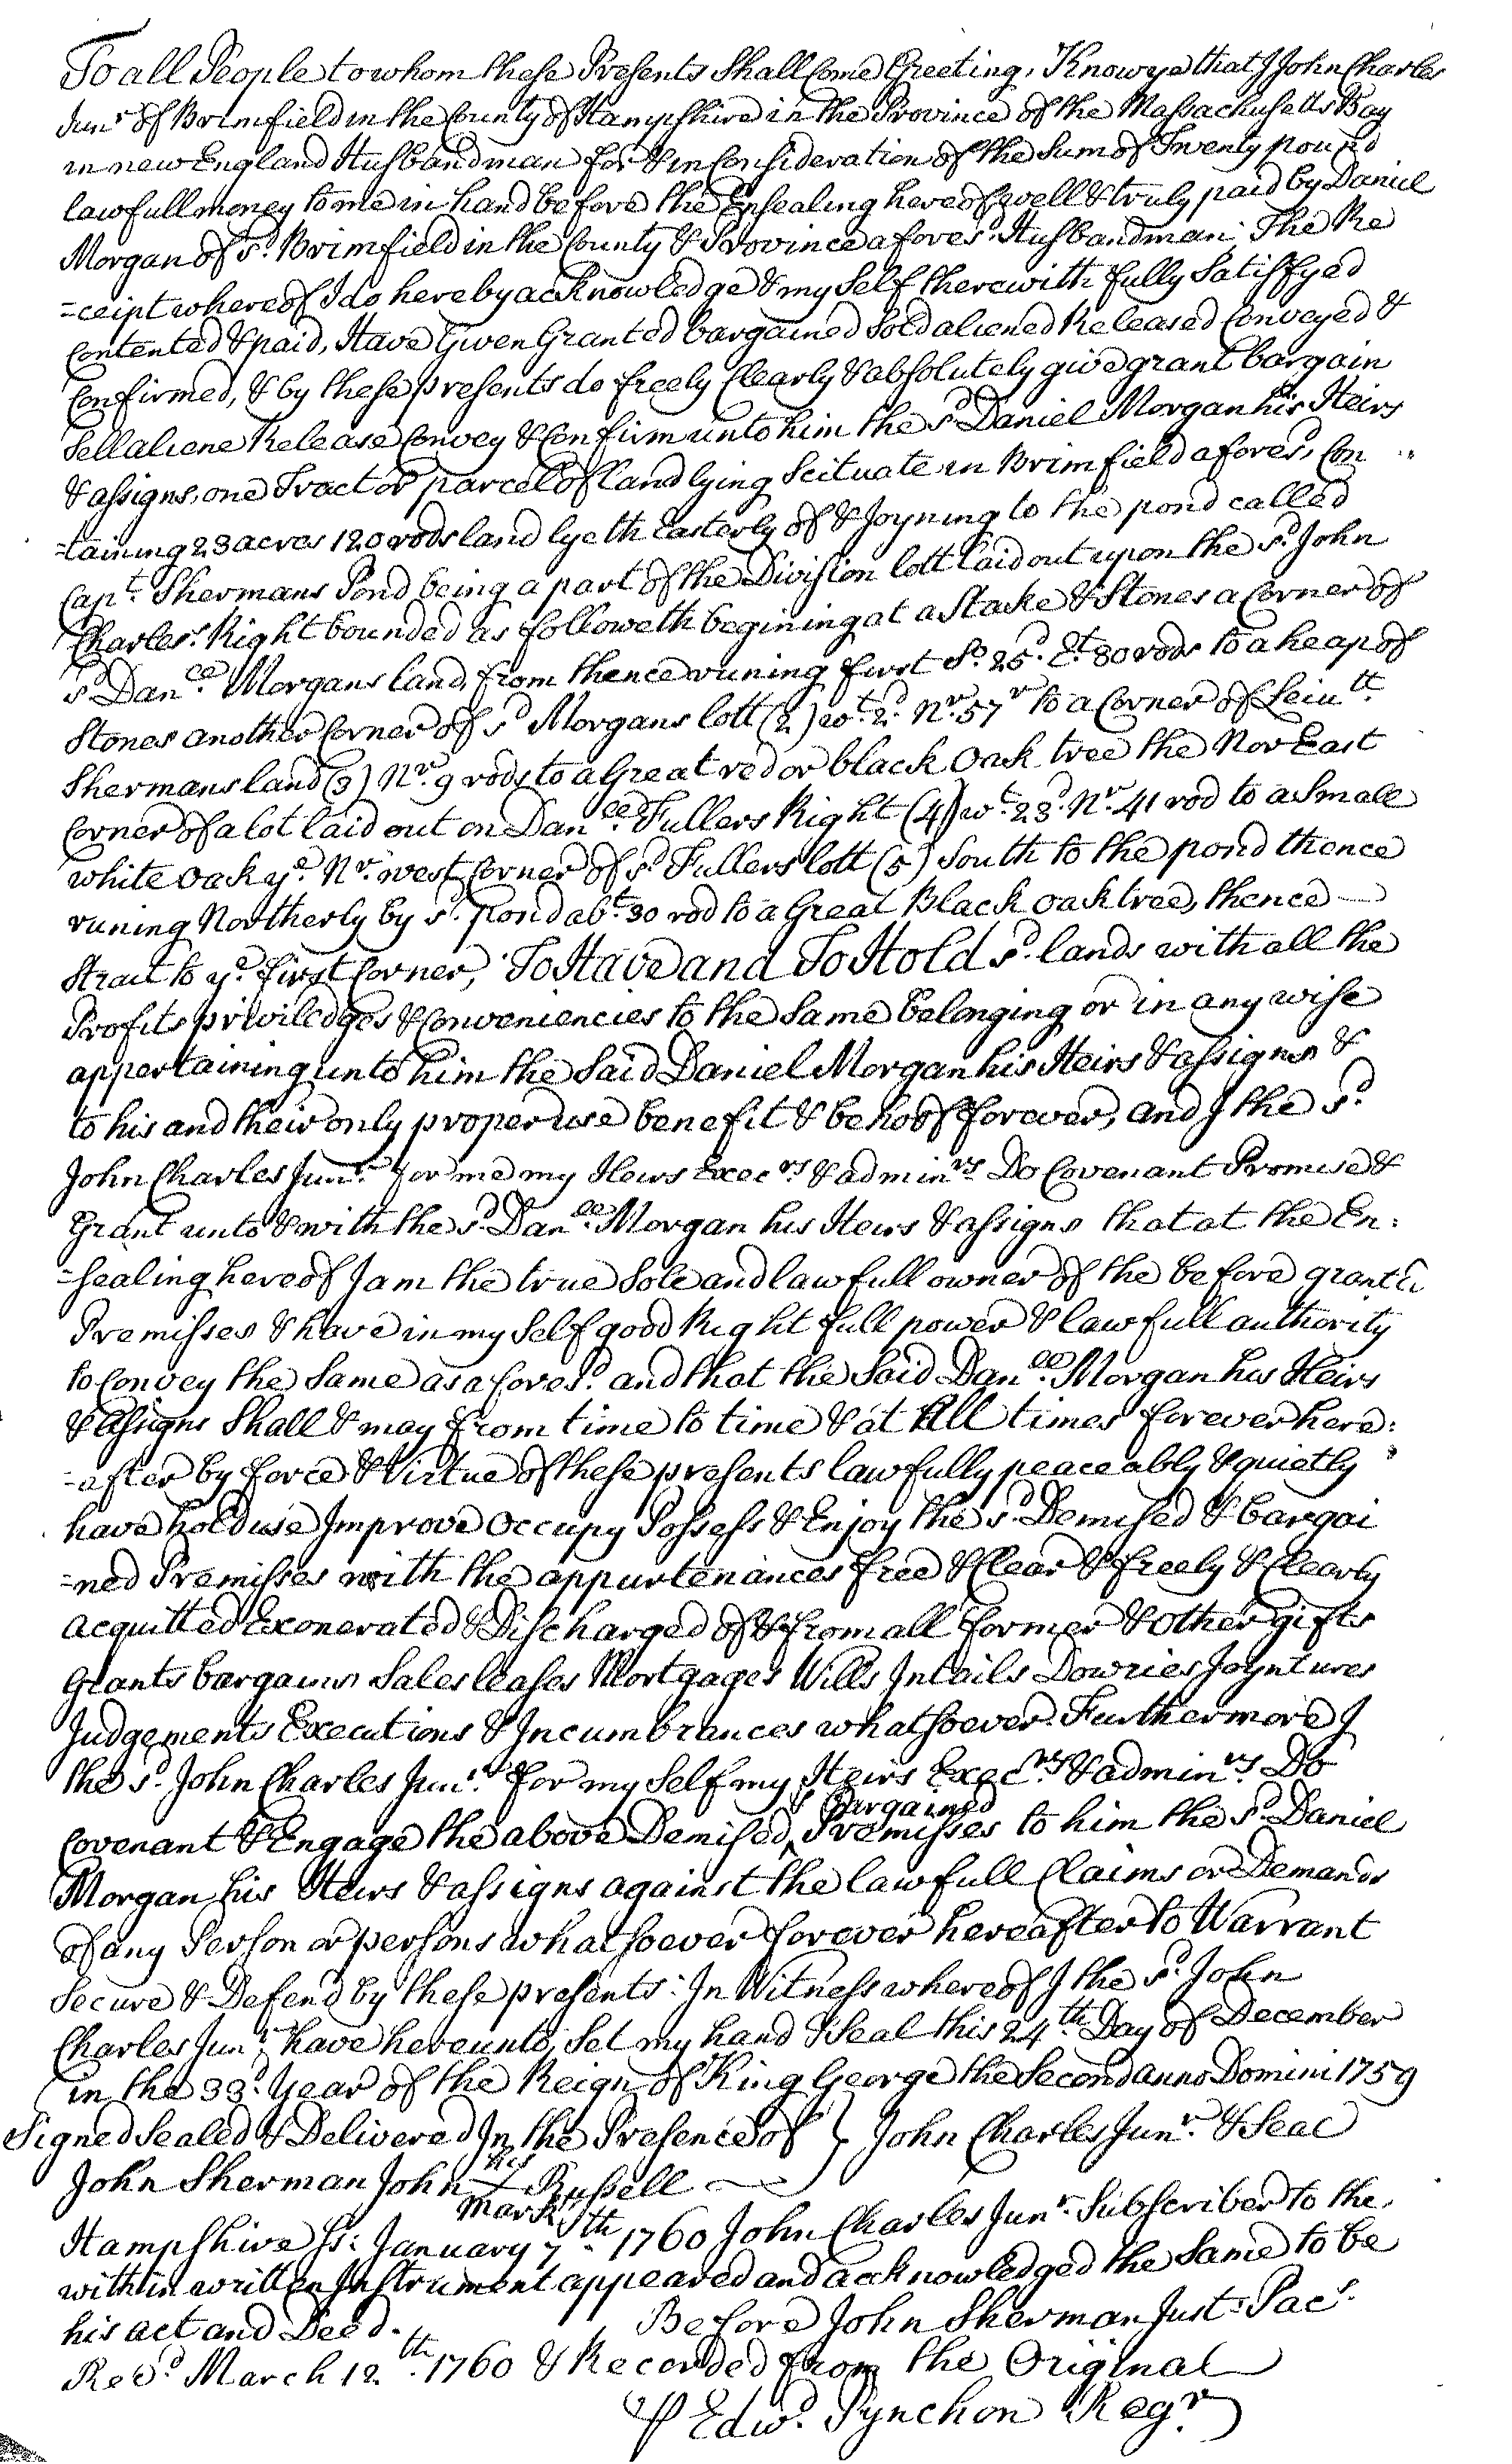 To all People to whom these Presents Shall Come Greeting, Know ye that I John Charles
Junr of Brimfield in the County of Hampshire in the Province of the Massachusetts Bay
in new England Husbandman for & in Consideration of the Sum of Twenty pound
lawfull money to me in hand before the Ensealing hereof well & truly paid by Daniel
Morgan of sd. Brimfield in the County & Province afores.d Husbandman The Re
=ceipt whereof I do hereby acknowledge & my Self therewith fully Satisfyed
Contented & paid, Have Given Granted bargained Sold aliened Released Conveyed &
Confirmed, & by these presents do freely Clearly & absolutely give grant bargain
Sell aliene Release Convey & Confirm unto him the sd Daniel Morgan his Heirs
& assigns, one Tract or parcel of land lying Scituate in Brimfield afores.d Con
=taining 23 acres 120 rods land lyeth Easterly of & Joyning to the pond called
Capt. Shermans Pond being a part of the Division lott laid out upon the sd. John
Charles's Right bounded as followeth begining at a Stake & Stones a Corner of
sd Danel. Morgans land, from thence runing first So. 25d. Et. 80 rods to a heap of
Stones another Corner of sd Morgans lott (2) wt. 2d. Nr. 57r to a Corner of Leiutt.
Shermans land (3) Nr. 9 rods to a Great red or black Oak tree the Nor East
Corner of a lot laid out on Danel. Fullers Right (4) wt. 23d. Nr. 41 rod to a Small
white oak ye. Nr. west Corner of sd. Fullers lott (5) South to the pond thence
runing Northerly by sd. pond abt. 30 rod to a Great Black oak tree, thence
Strait to ye. first Corner, To Have and To Hold sd. lands with all the
Profits priviledges & Conveniencies to the Same belonging or in any wise
appertaining unto him the Said Daniel Morgan his Heirs & assigns &
to his and their only proper use benefit & behoof forever, and I the sd.
John Charles Junr. for me my Heirs Execrs. & adminrs. Do Covenant Promise &
Grant unto & with the sd. Danel. Morgan his Heirs & assigns that at the En:
=sealing hereof I am the true Sole and lawfull owner of the before grantd
Premisses & have in my Self good Right full power & lawfull authority
to Convey the Same as afores.d and that the Said Danel. Morgan his Heirs
& assigns Shall & may from time to time & at All times forever here:
=after by force & Virtue of these presents lawfully peaceably & quietly
have hold use Improve Occupy Possess & Enjoy the sd. Demised & bargai
=ned Premisses with the appurtenances free & Clear & freely & Clearly
acquitted Exonerated & Discharged of & from all former & Other gifts
Grants bargains Sales leases Mortgages Wills Intails Dowries Joyntures
Judgements Executions & Incumbrances whatsoever. Furthermore I
the sd. John Charles Junr. for my Self my Heirs Execrs. & adminrs. Do
& Bargained
Covenant & Engage the above Demised ^ Premisses to him the sd. Daniel
Morgan his Heirs & assigns against the lawfull Claims or Demands
of any Person or persons whatsoever forever hereafter to Warrant
Secure & Defend by these presents: In Witness whereof I the sd. John
Charles Junr. have hereunto Set my hand & Seal this 24th. Day of December
in the 33d. Year of the Reign of King George the Second anno Domini 1759
Signed Sealed & Delivered In the Presence of } John Charles Junr. & Seal
his
John Sherman John + Russell
mark
Hampshire Ss: January 7th. 1760 John Charles Junr. Subscriber to the
within written Instrument appeared and acknowledged the Same to be
his act and Deed. Before John Sherman Just: Pacs.
Recd. March 12th. 1760 & Recorded from the Original
P Edwd. Pynchon Regr